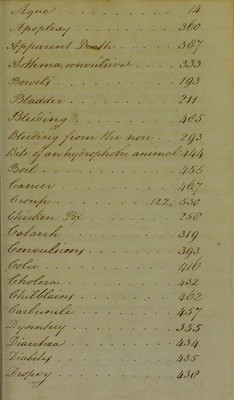 Ague 14
Apoplexy 360
Apparent Death 387
Asthma, convulsive 333
Bowels 193
Bladder 211
Bleeding 405
Bleeding from the nose 293
Bite of an hydrophobic animal 444
Boil 455
Cancer 467
Croup 122, 530
Chicken Pox 258
Catarrh 319
Convulsions 393
Colic 416
Cholera 432
Chilblains 462
Carbuncle 457
Dysentery 355
Diarrhœa 434
Diabetes 435
Dropsy 438